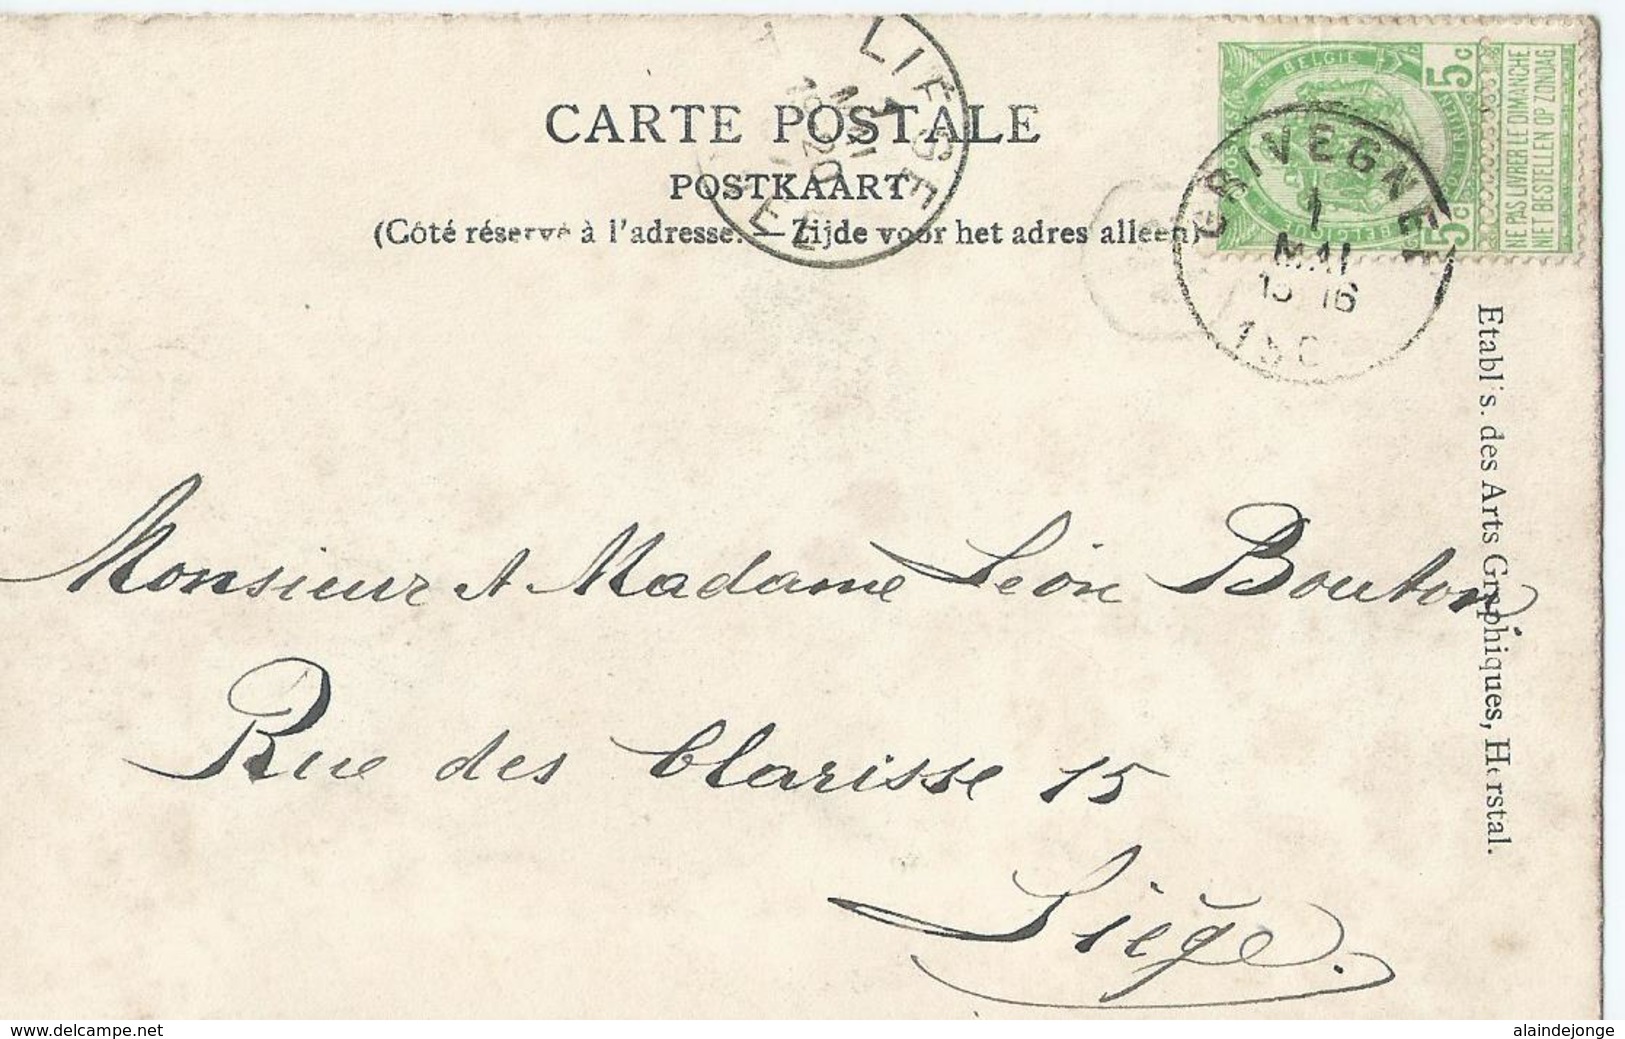 CARTE POSTALE
POSTKAART
(Côté réservé à l'adresse. — Zijde voor het adres alleen)
LIEGE
1
MAI
20
BELGIE
5c
5c
BELGIQUE
NE PAS LIVRER LE DIMANCHE
NIET BESTELLEN OP ZONDAG
GRIVEGNEE
1
MAI
16
190
Etablis. des Arts Graphiques, Herstal.
Monsieur et Madame Léon Bouton.
Rue des Clarisse 15
Liège.
www.delcampe.net
alaindejonge